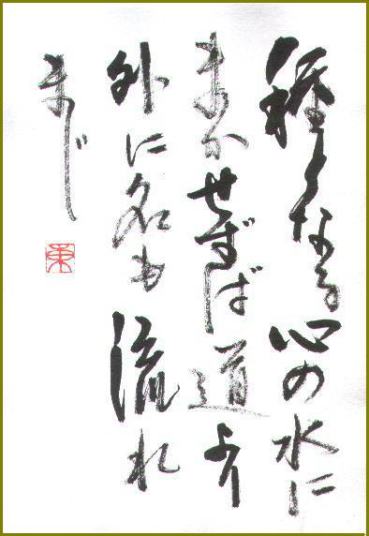 種となる心の水に
まかせずば道より
外に名も流れ
まじ
東